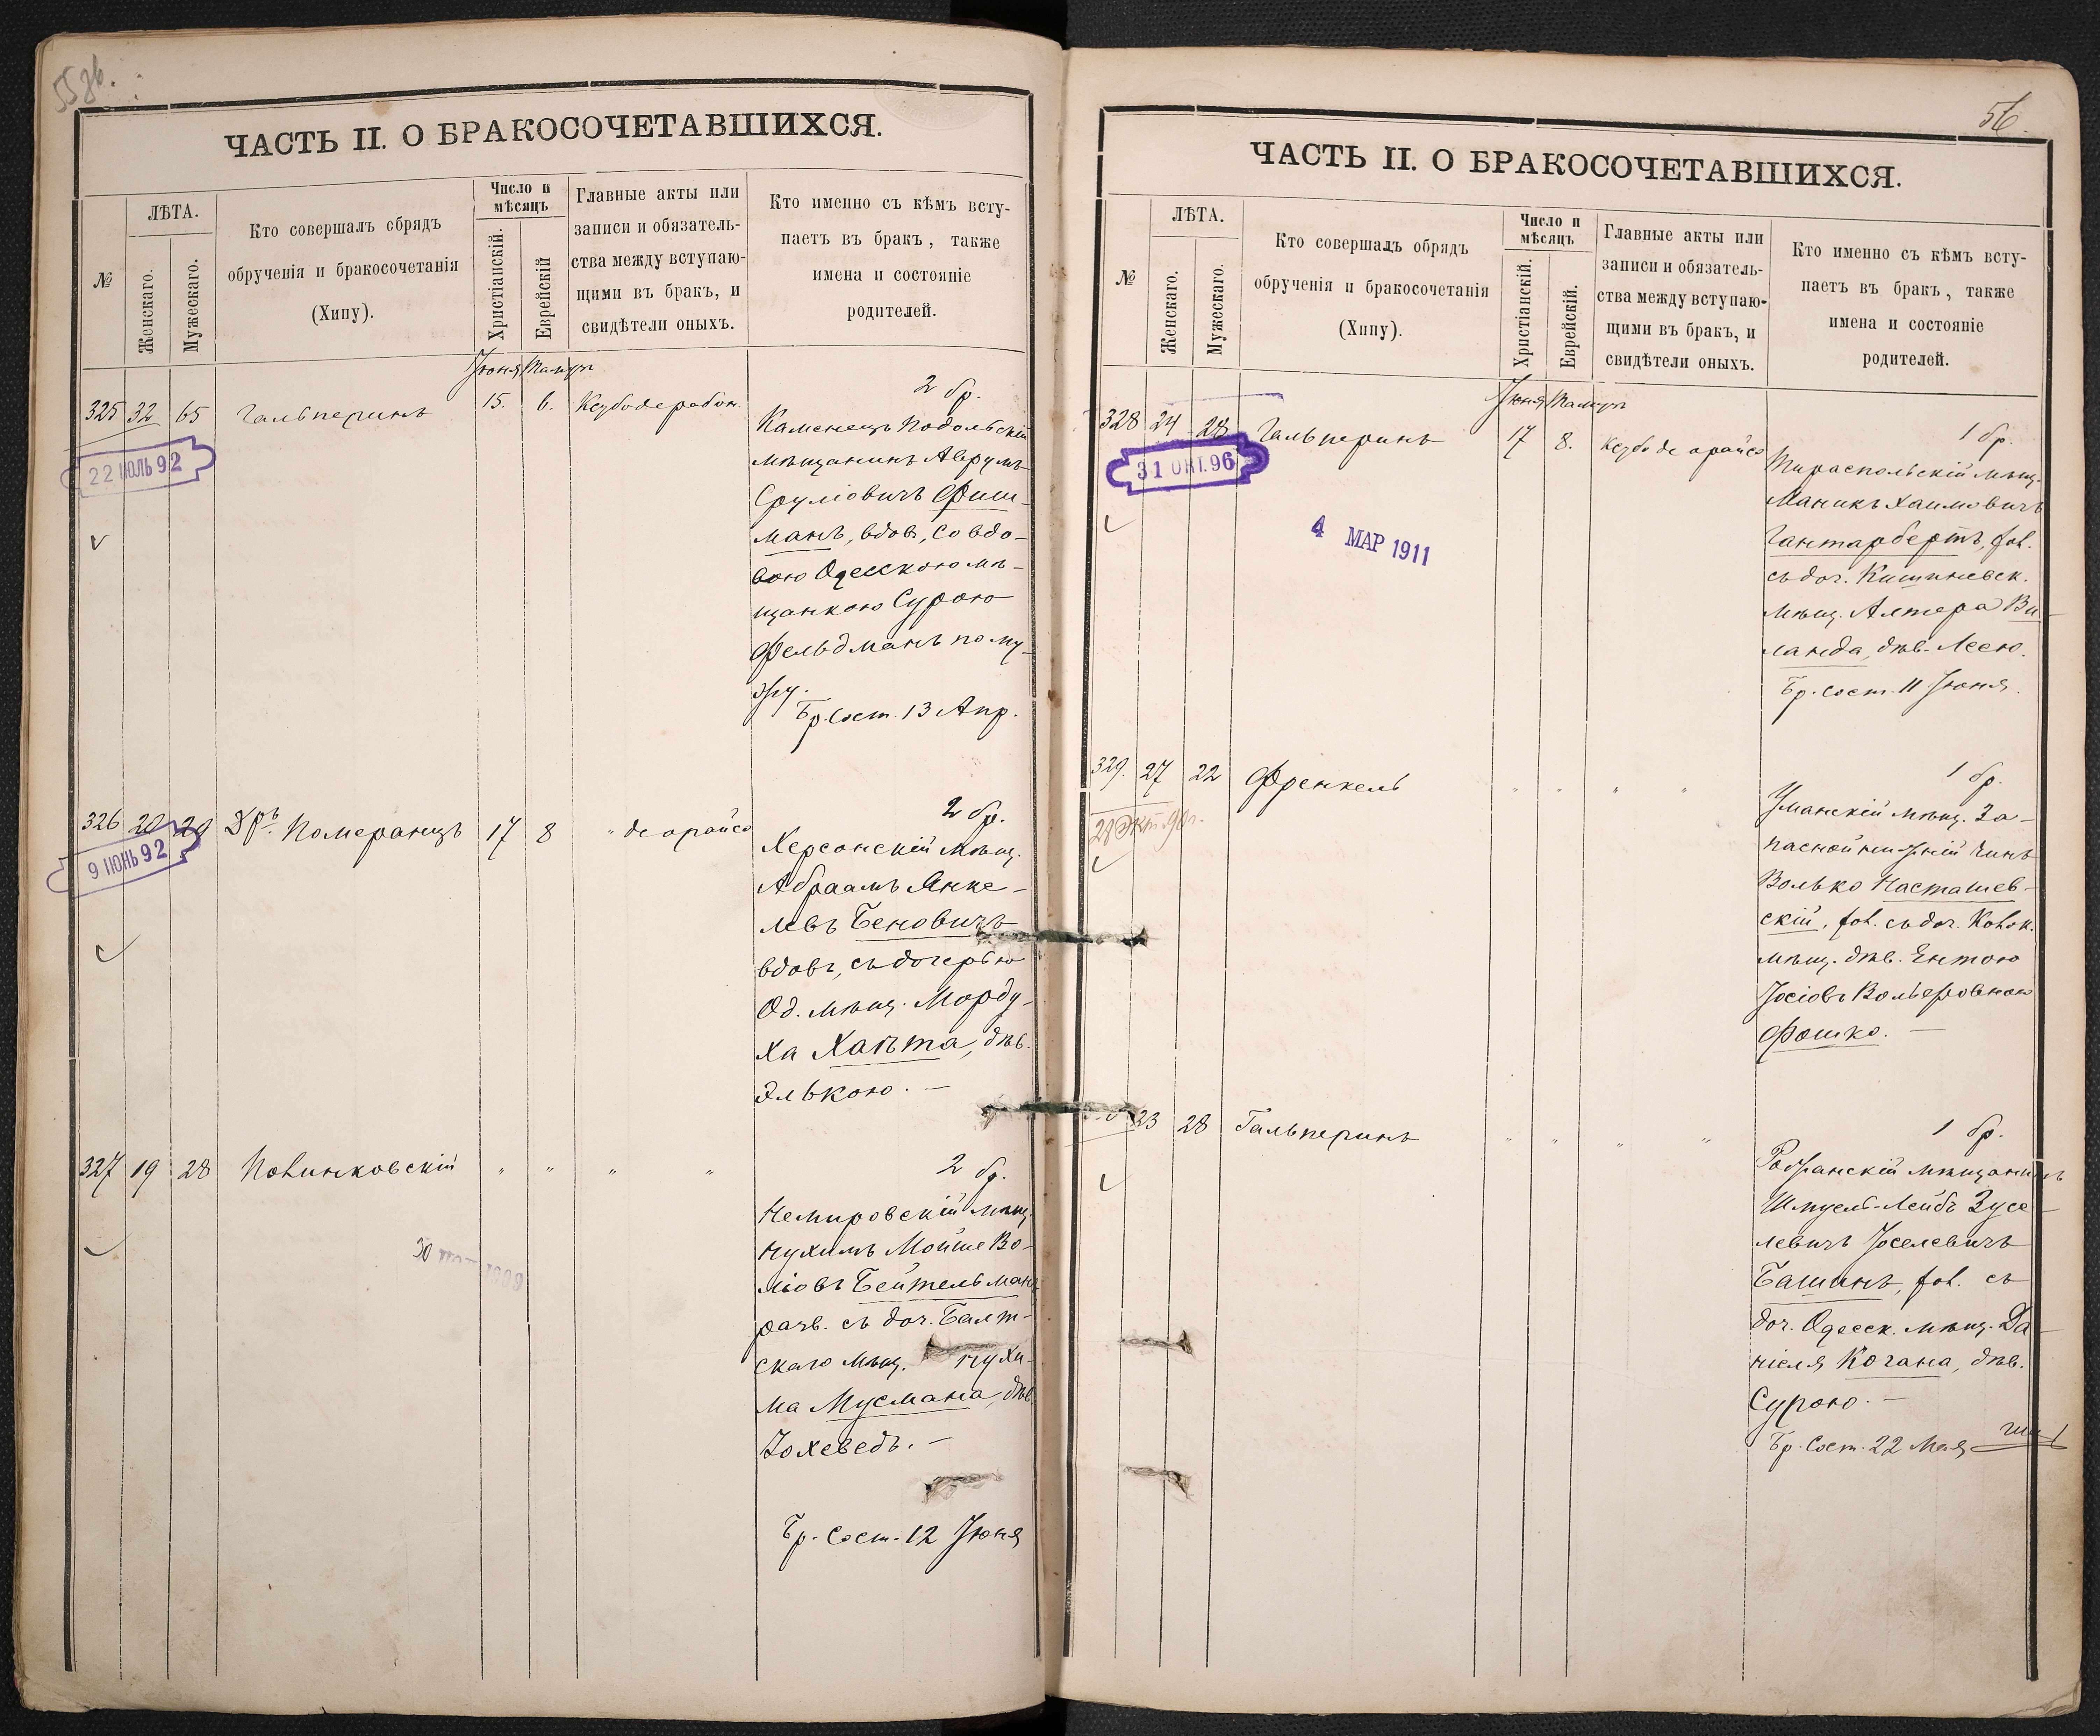 ЧАСТЬ II. О БРАКОСОЧЕТАВШИХСЯ.
№
ЛѢТА.
Женскаго.
Мужескаго.
Кто совершалъ обрядъ
обрученія и бракосочетанія
(Хипу).
Число и
мѣсяцъ
Христіанскій.
Еврейскій
Главные акты или
записи и обязатель-
ства между вступаю-
щими въ бракъ, и
свидѣтели оныхъ.
Кто именно съ кѣмъ всту-
паетъ въ бракъ, также
имена и состояніе
родителей.
Іюня Тамузъ
325 32 65 Гальперинъ 15. 6.
22 ІЮЛЬ 92
2 бр.
Каменецъ Подольскій
мѣщанинъ Аврумъ
Сруліовичъ Фиш-
манъ, вдов, со вдо-
вою Одесскою мѣ-
щанкою Сурою
Фельдманъ по му-
жу.
Бр. сост. 13 Апр.
326 20 29 Др. Померанцъ 17 8 " де орайсо
9 ІЮНЬ 92
2 бр.
Херсонскій мѣщ.
Абраамъ Янке-
левъ Беновичъ
вдовъ, съ дочерью
Од. мѣщ. Морду-
ха Хаита, дѣв.
Элькою. —
327 19 28 Новинковскій " " " "
30
2 бр.
Немировскій мѣщ.
Нухимъ Мойше Во-
ліовъ Бейтельманъ
разв. съ доч. Балт-
скаго мѣщ. Нухи-
ма Мусмана, дѣв.
Іохеведъ. —
Бр. Сост. 12 Іюня
56.
ЧАСТЬ II. О БРАКОСОЧЕТАВШИХСЯ.
№
ЛѢТА.
Женскаго.
Мужескаго.
Кто совершалъ обрядъ
обрученія и бракосочетанія
(Хипу).
Число и
мѣсяцъ
Христіанскій.
Еврейскій.
Главные акты или
записи и обязатель-
ства между вступаю-
щими въ бракъ, и
свидѣтели оныхъ.
Кто именно съ кѣмъ всту-
паетъ въ бракъ, также
имена и состояніе
родителей.
Іюня Тамузъ
328 24 28 Гальперинъ 17 8. де орайсо
31 ОКТ. 96
4 МАР 1911
1 бр.
Тираспольскій мѣщ.
Маникъ Хаимовичъ
Гантарбертъ, хол.
съ доч. Кишиневск.
мѣщ. Алтера Ви-
ланда, дѣв. Леею.
Бр. сост. 11 Іюня.
329. 27 22 Френкель " " " "
1 бр.
Уманскій мѣщ. За-
пасной нижній чинъ
Волько Насташев-
скій, хол. съ доч.
мѣщ. дѣв. Ентою
Іосіовъ Вольфовною
Фошко. —
23 28 Гальперинъ " " " "
1 бр.
мѣщанинъ
Шмуель-Лейбъ Зусе-
левичъ Іоселевичъ
Башинъ, хол. съ
доч. Одесск. мѣщ. Да-
ніеля Когана, дѣв.
Сурою. —
Бр. Сост. 22 Мая